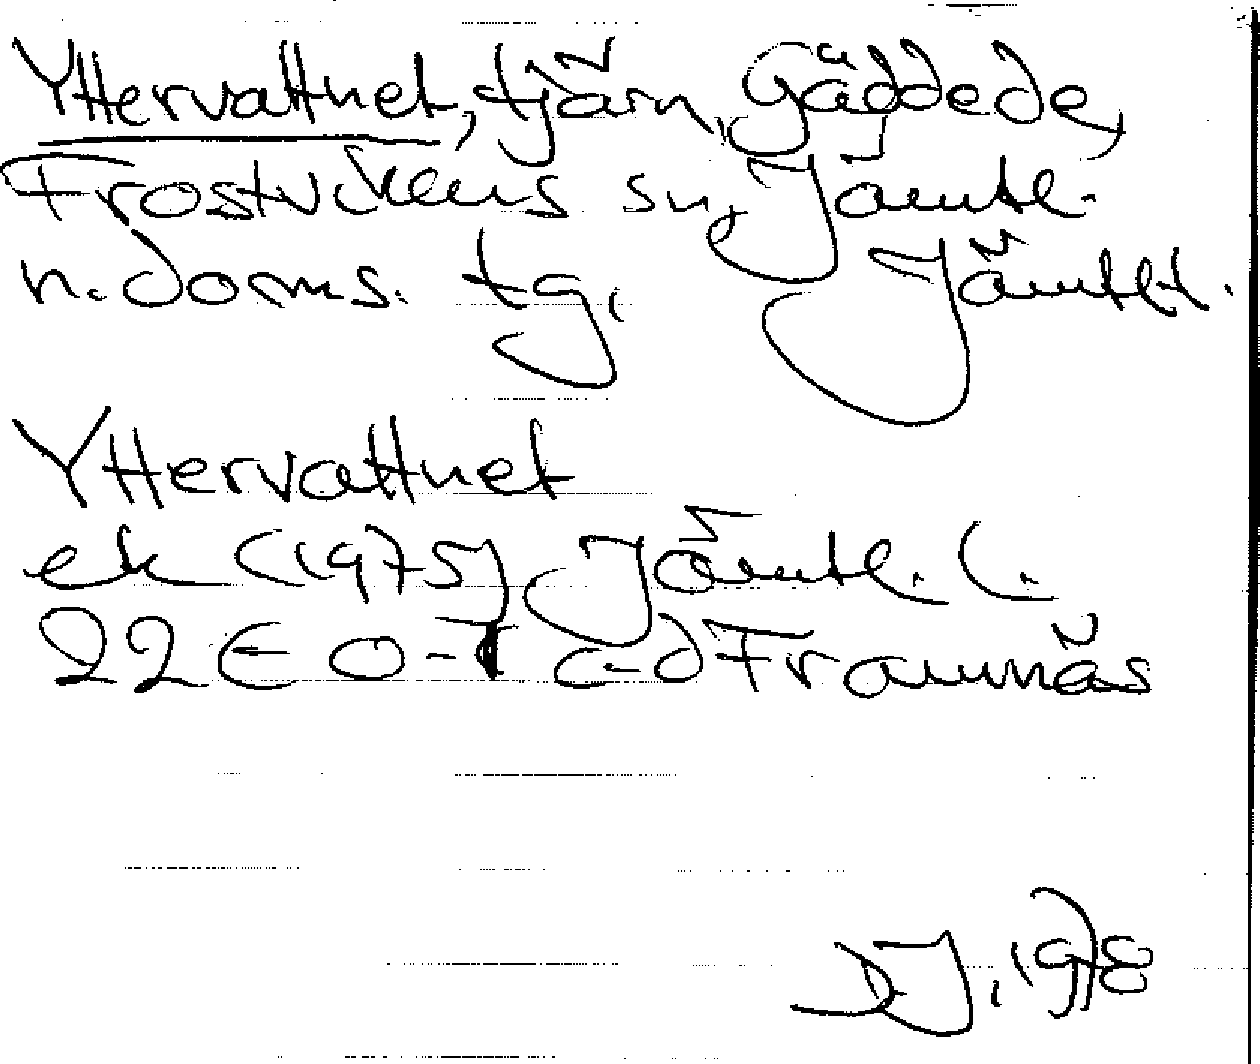 Yttervattnet, tjärn, Gäddede,
Frostvikens sn, Jämtl.
n. doms. tg. Jämtl.
Yttervattnet
ek (1975), Jämtl. l.
22E 0-1 c-d Framnäs
1978